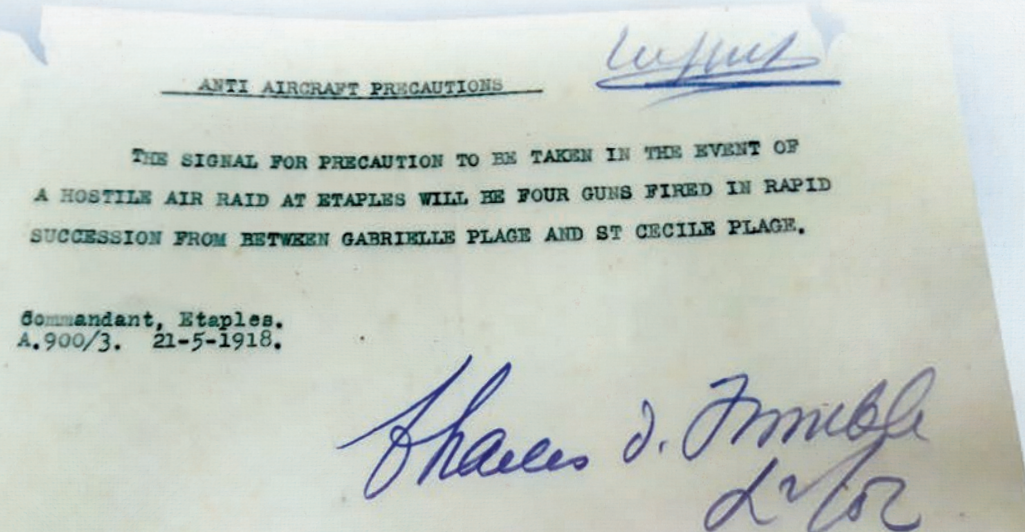 ANTI AIRCRAFT PRECAUTIONS
THE SIGNAL FOR PRECAUTION TO BE TAKEN IN THE EVENT OF
A HOSTILE AIR RAID AT ETAPLES WILL BE FOUR GUNS FIRED IN RAPID
SUCCESSION FROM BETWEEN GABRIELLE PLAGE AND ST CECILE PLAGE.
Commandant, Etaples.
A.900/3. 21-5-1918.
Charles J. Trimble
Lt Col